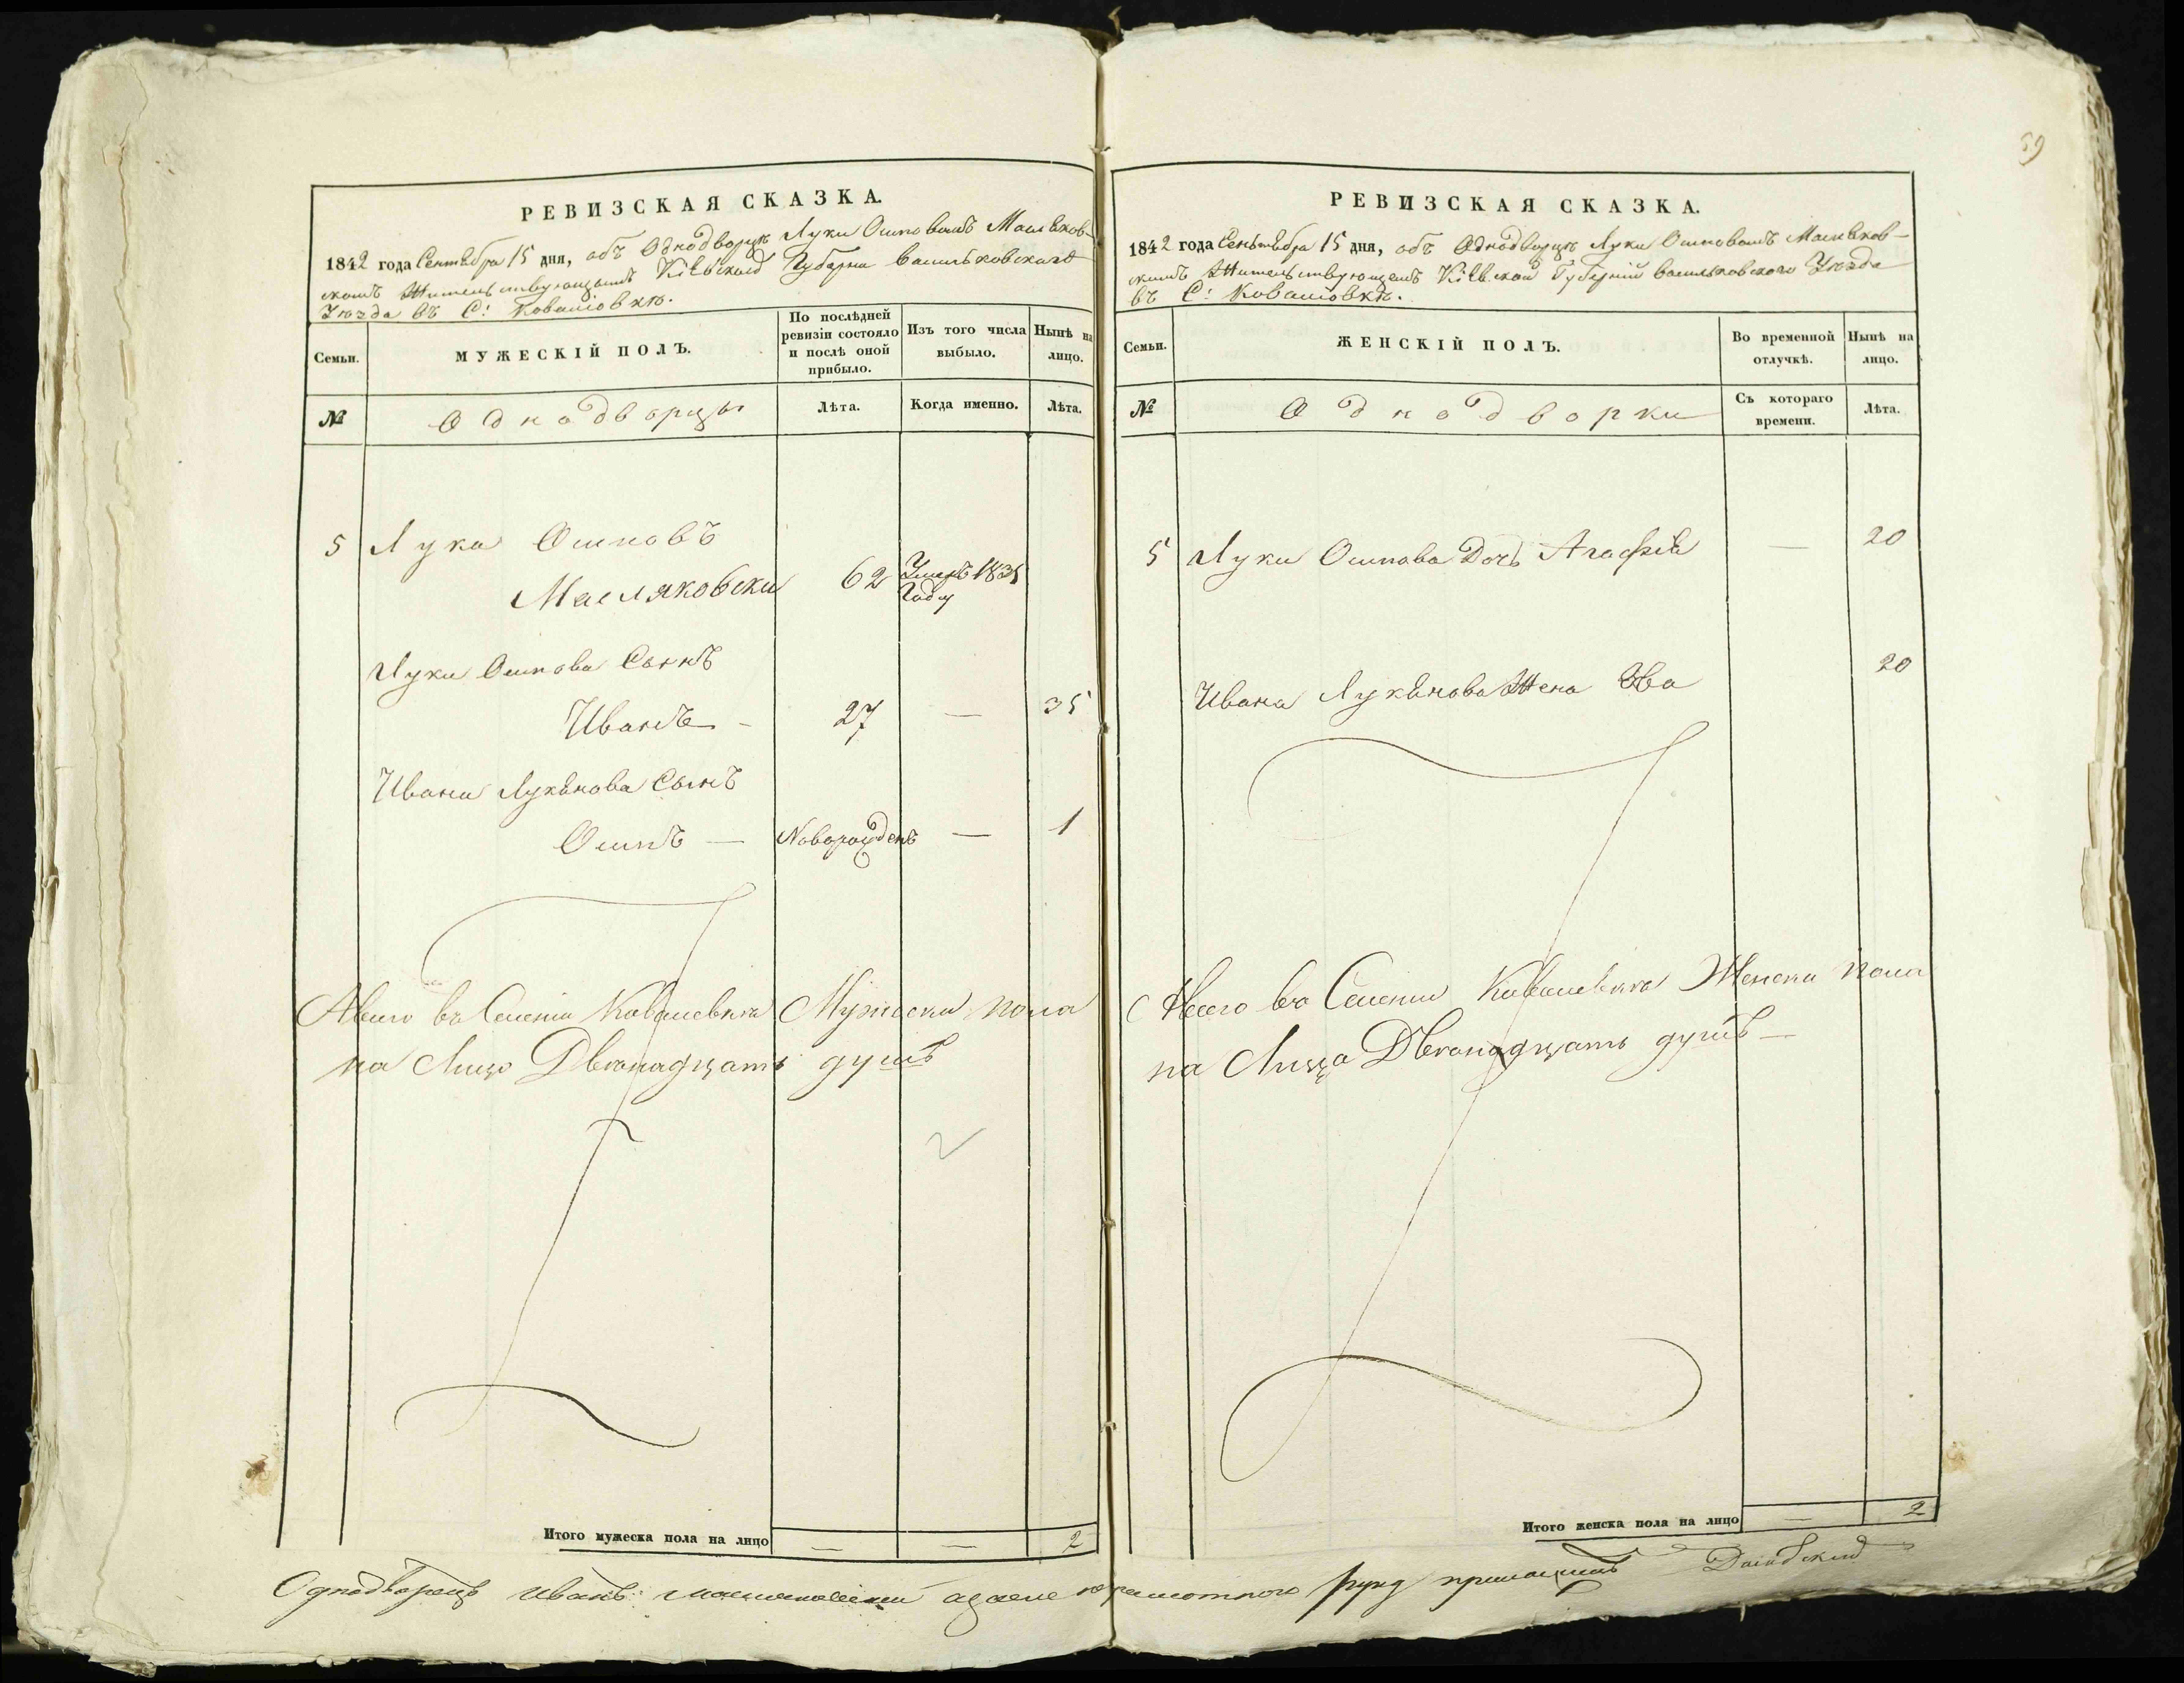 59
РЕВИЗСКАЯ СКАЗКА.
1842 года Сентября 15 дня, объ Однодворцѣ Луки Осиповомъ Масляков-
скомъ Жительствующымъ Кіевской Губерни Васильковского
Уѣзда въ С: Ковалювкѣ.
Семьи.
МУЖЕСКІЙ ПОЛЪ.
По послѣдней ревизіи состояло и послѣ оной прибыло.
Изъ того числа выбыло.
Нынѣ на лицо.
№
Однодворцы
Лѣта.
Когда именно.
Лѣта.
5 Лука Осиповъ
Масляковски 62 Умеръ 1835
Году
Луки Осипова Сынъ
Иванъ - 27 — 35
Ивана Лукянова Сынъ
Осипъ — Новорожденъ — 1
Авсего въ Селеніи Ковалевкѣ Мужеска пола
на Лицо Двѣнадцать душъ
2
Итого мужеска пола на лицо — — 2
РЕВИЗСКАЯ СКАЗКА.
1842 года Сеньтября 15 дня, объ Однодворцѣ Луки Осиповомъ Масляков-
скомъ Жительствующемъ Кіевской Губерніи Васильковского Уѣзда
въ С: Ковалювкѣ.
Семьи.
ЖЕНСКІЙ ПОЛЪ.
Во временной отлучкѣ.
Нынѣ на лицо.
№
Однодворки
Съ котораго времени.
Лѣта.
5 Луки Осипова Дочь Агафія — 20
Ивана Лукянова Жена Эва 20
Авсего въ Селении Ковалевкѣ Женска пола
на Лицо Двѣнадцать душъ —
Итого женска пола на лицо — 2
Однодворецъ Иванъ Масляковский азаего неграмотного руку приложилъ